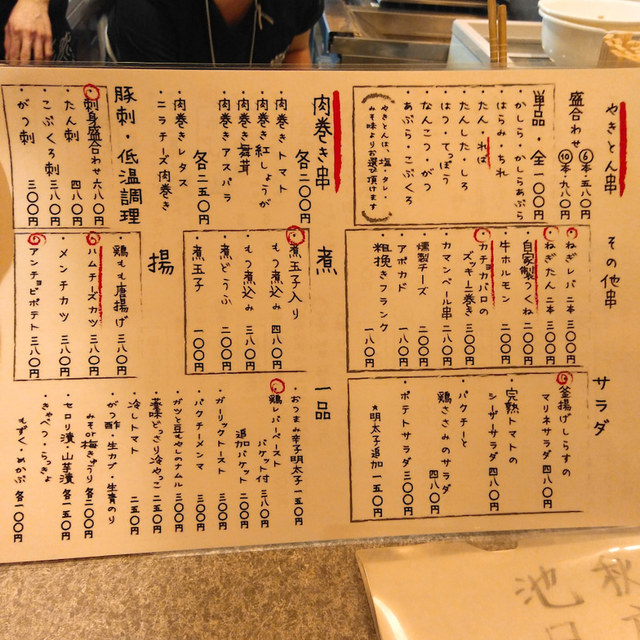 やきとん串
盛合わせ
⑥本・五八〇円
⑩本・九八〇円
単品 全一〇〇円
・かしら・かしらあぶら
・はらみ・ちれ
・たん・ればー
・たんした・しろ
・はつ・てっぽう
・なんこつ・がつ
・あぶら・こぶくろ
やきとんは、塩・タレ・
みそ味よりお選び頂けます
肉巻き串
各二〇〇円
・肉巻きトマト
・肉巻き紅しょうが
・肉巻き舞茸
・肉巻きアスパラ
各二五〇円
・肉巻きレタス
・ニラチーズ肉巻き
豚刺・低温調理
・刺身盛合わせ 六八〇円
・たん刺 四八〇円
・こぶくろ刺 三〇〇円
・がつ刺 三〇〇円
その他串
・ねぎレバ 二本 三〇〇円
・ねぎたん 二本 三〇〇円
・自家製つくね 二〇〇円
・牛ホルモン 二〇〇円
・カチョカバロの
ズッキーニ巻き 三〇〇円
・カマンベール串 二八〇円
・燻製チーズ 二〇〇円
・アボカド 一八〇円
・粗挽きフランク 一八〇円
煮
・煮玉子入り
もつ煮込み 四八〇円
・もつ煮込み 三八〇円
・煮どうふ 二〇〇円
・煮玉子 一〇〇円
揚
・鶏もも唐揚げ 三八〇円
・ハムチーズカツ 三八〇円
・メンチカツ 三八〇円
・アンチョビポテト 三八〇円
サラダ
・釜揚げしらすの
マリネサラダ 四八〇円
・完熟トマトの
シーザーサラダ 四八〇円
・パクチーと
鶏ささみのサラダ 四八〇円
・ポテトサラダ 三〇〇円
★明太子追加 一五〇円
一品
・おつまみ辛子明太子 一五〇円
・鶏レバーペースト
バケット付 三八〇円
追加バケット 二〇〇円
・ガーリックトースト 三〇〇円
・パクチーメンマ 三〇〇円
・ガツと豆もやしのナムル 三〇〇円
・薬味どっさり冷やっこ 二五〇円
・冷しトマト 二五〇円
・がつ酢・生カブ・生青のり
・みそor梅きゅうり 各二〇〇円
・セロリ漬・山芋漬 各一五〇円
・きゃべつ・らっきょ
・もずく・めかぶ 各一〇〇円
池